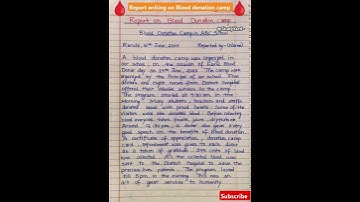 Report writing on Blood donation camp
Report on Blood Donation Camp
Blood Donation Camp in ABC School
Ranchi, 16th June, 2022 Reported by- (Name)
A blood donation camp was organised in
our school on the occasion of World Blood
Donor day on 14th June, 2022. The camp was
organised by the Principal of our school. Five
doctors and eight nurses from District hospital
offered their valuable services to the camp.
The program started at 9:30 a.m. in the
Morning. Many students, teachers and staffs
donated blood with proud hearts. Some of the
visitors were also donated blood. Before
blood
Around 12:30 p.m., a doctor also gave a very
good speech on the benefits of Blood donation.
A certificate of appreciation, donation camp
card, refreshment was given to each donor
as a token of gratitude. 544 units of blood
was collected. All the collected blood was
sent to the District Hospital to save the
precious lives patients. The program lasted
till 5 pm in the evening. This was an
act of great service to humanity.
Subscribe